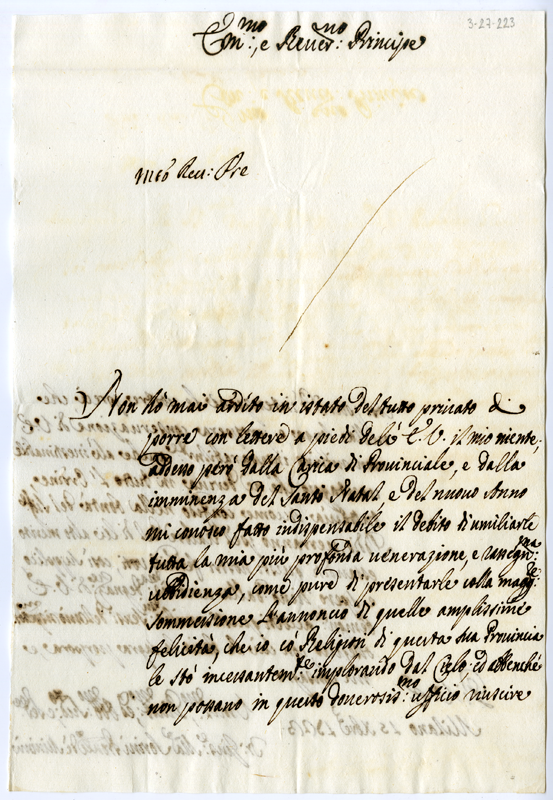 3-27-223
Em:mo, e Rever:no Principe
Mto Rev: Pre
Non hò mai ardito in istato del tutto privato di
porre con lettere a piedi dela E. V. il mio niente,
adesso però dalla Carica di Provinciale, e dalla
imminenza del Santo Natal e del nuovo Anno
mi conosco fatto indispensabile il debito d'umiliarle
tutta la mia più profonda venerazione, e
ubidienza, come pure di presentarle colla magg:re
sommessione L'annoncio di quelle amplissime
felicità, che io có Religiosi di questa sua Provincia
le stò incessantem:te implorando dal Cielo: ed affenché
non possano in questo doverosis:mo ufficio riuscire
Milano 15